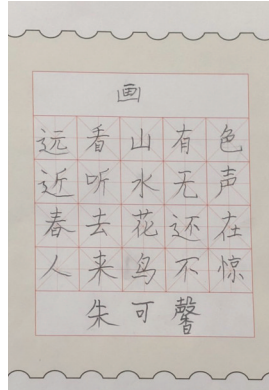 画
远看山有色
近听水无声
春去花还在
人来鸟不惊
朱可馨